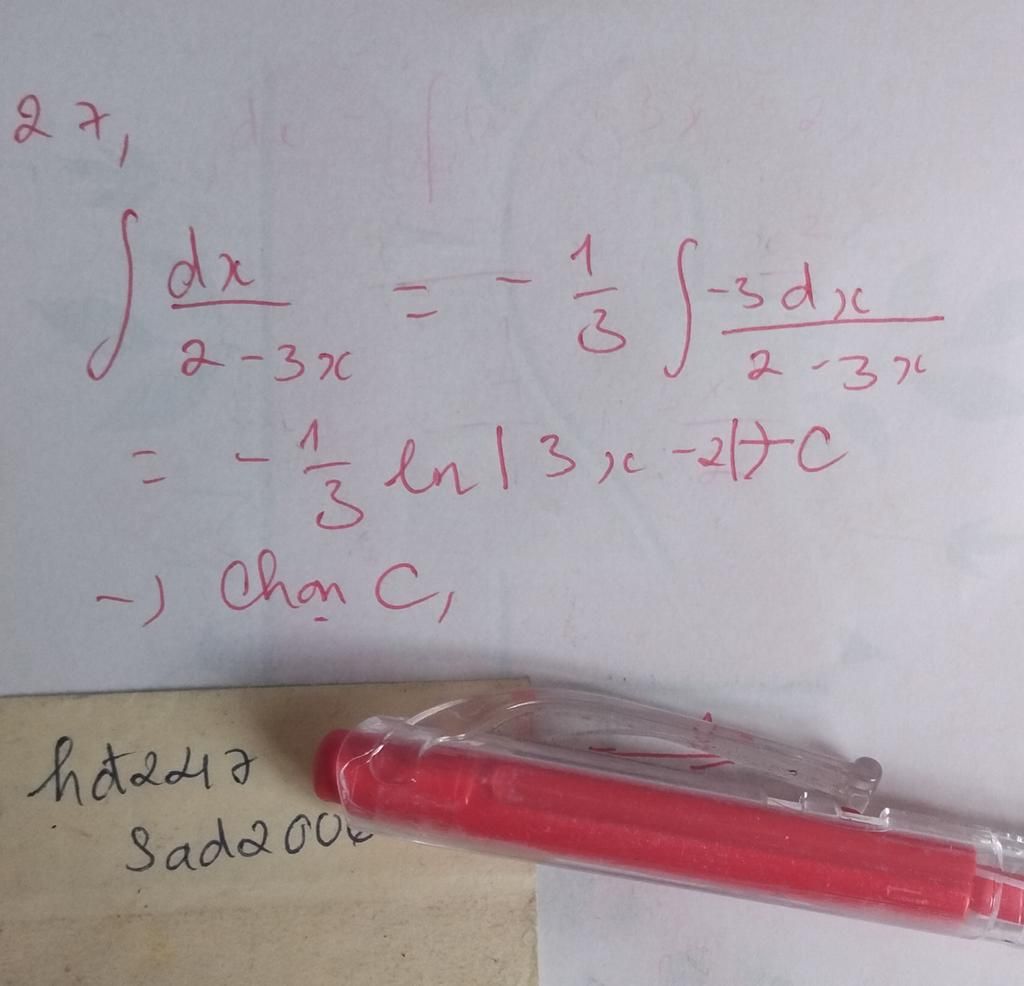 27,
∫ dx/(2-3x) = -1/3 ∫ -3dx/(2-3x)
= -1/3 ln|3x-2|+C
→ Chọn C,
hdt247